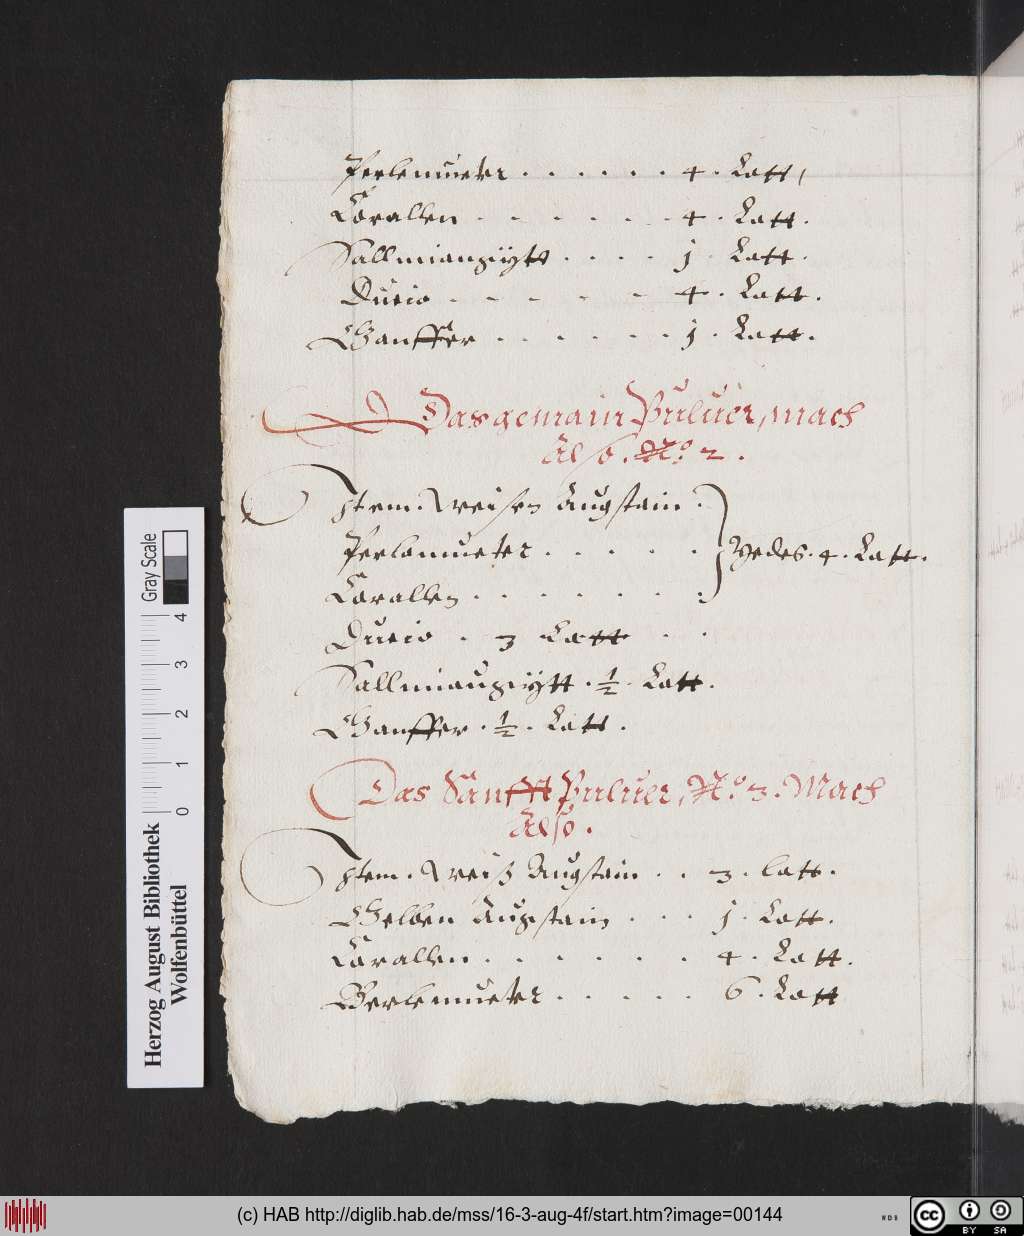 Perlemueter . . . . . . 4 . Lott /
Corallen . . . . . . 4 . Lott .
Sallmiauzytt . . . . j . Lott .
Ducio . . . . . . 4 . Lott .
Ganffer . . . . . . j . Lott .
Das gemain Puluer, mach
Also . No. 2 .
Item . Weisen Augstain .
Perlamueter . . . . . Yedes . 4 . Lott .
Corallen . . . . . . .
Ducio . 3 Lott . .
Sallmiauzytt . 1/2 . Lott .
Ganffer . 1/2 . Lott .
Das Sanfft Puluer, No. 3 . Mach
Also .
Item . Weiß Augstain . . 3 . lott .
Gelben Augstain . . . j . Lott .
Corallen . . . . . . 4 . Lott .
Berlemueter . . . . . 6 . Lott
Gray Scale
0 1 2 3 4
Herzog August Bibliothek
Wolfenbüttel
(c) HAB http://diglib.hab.de/mss/16-3-aug-4f/start.htm?image=00144
WDB
cc BY SA